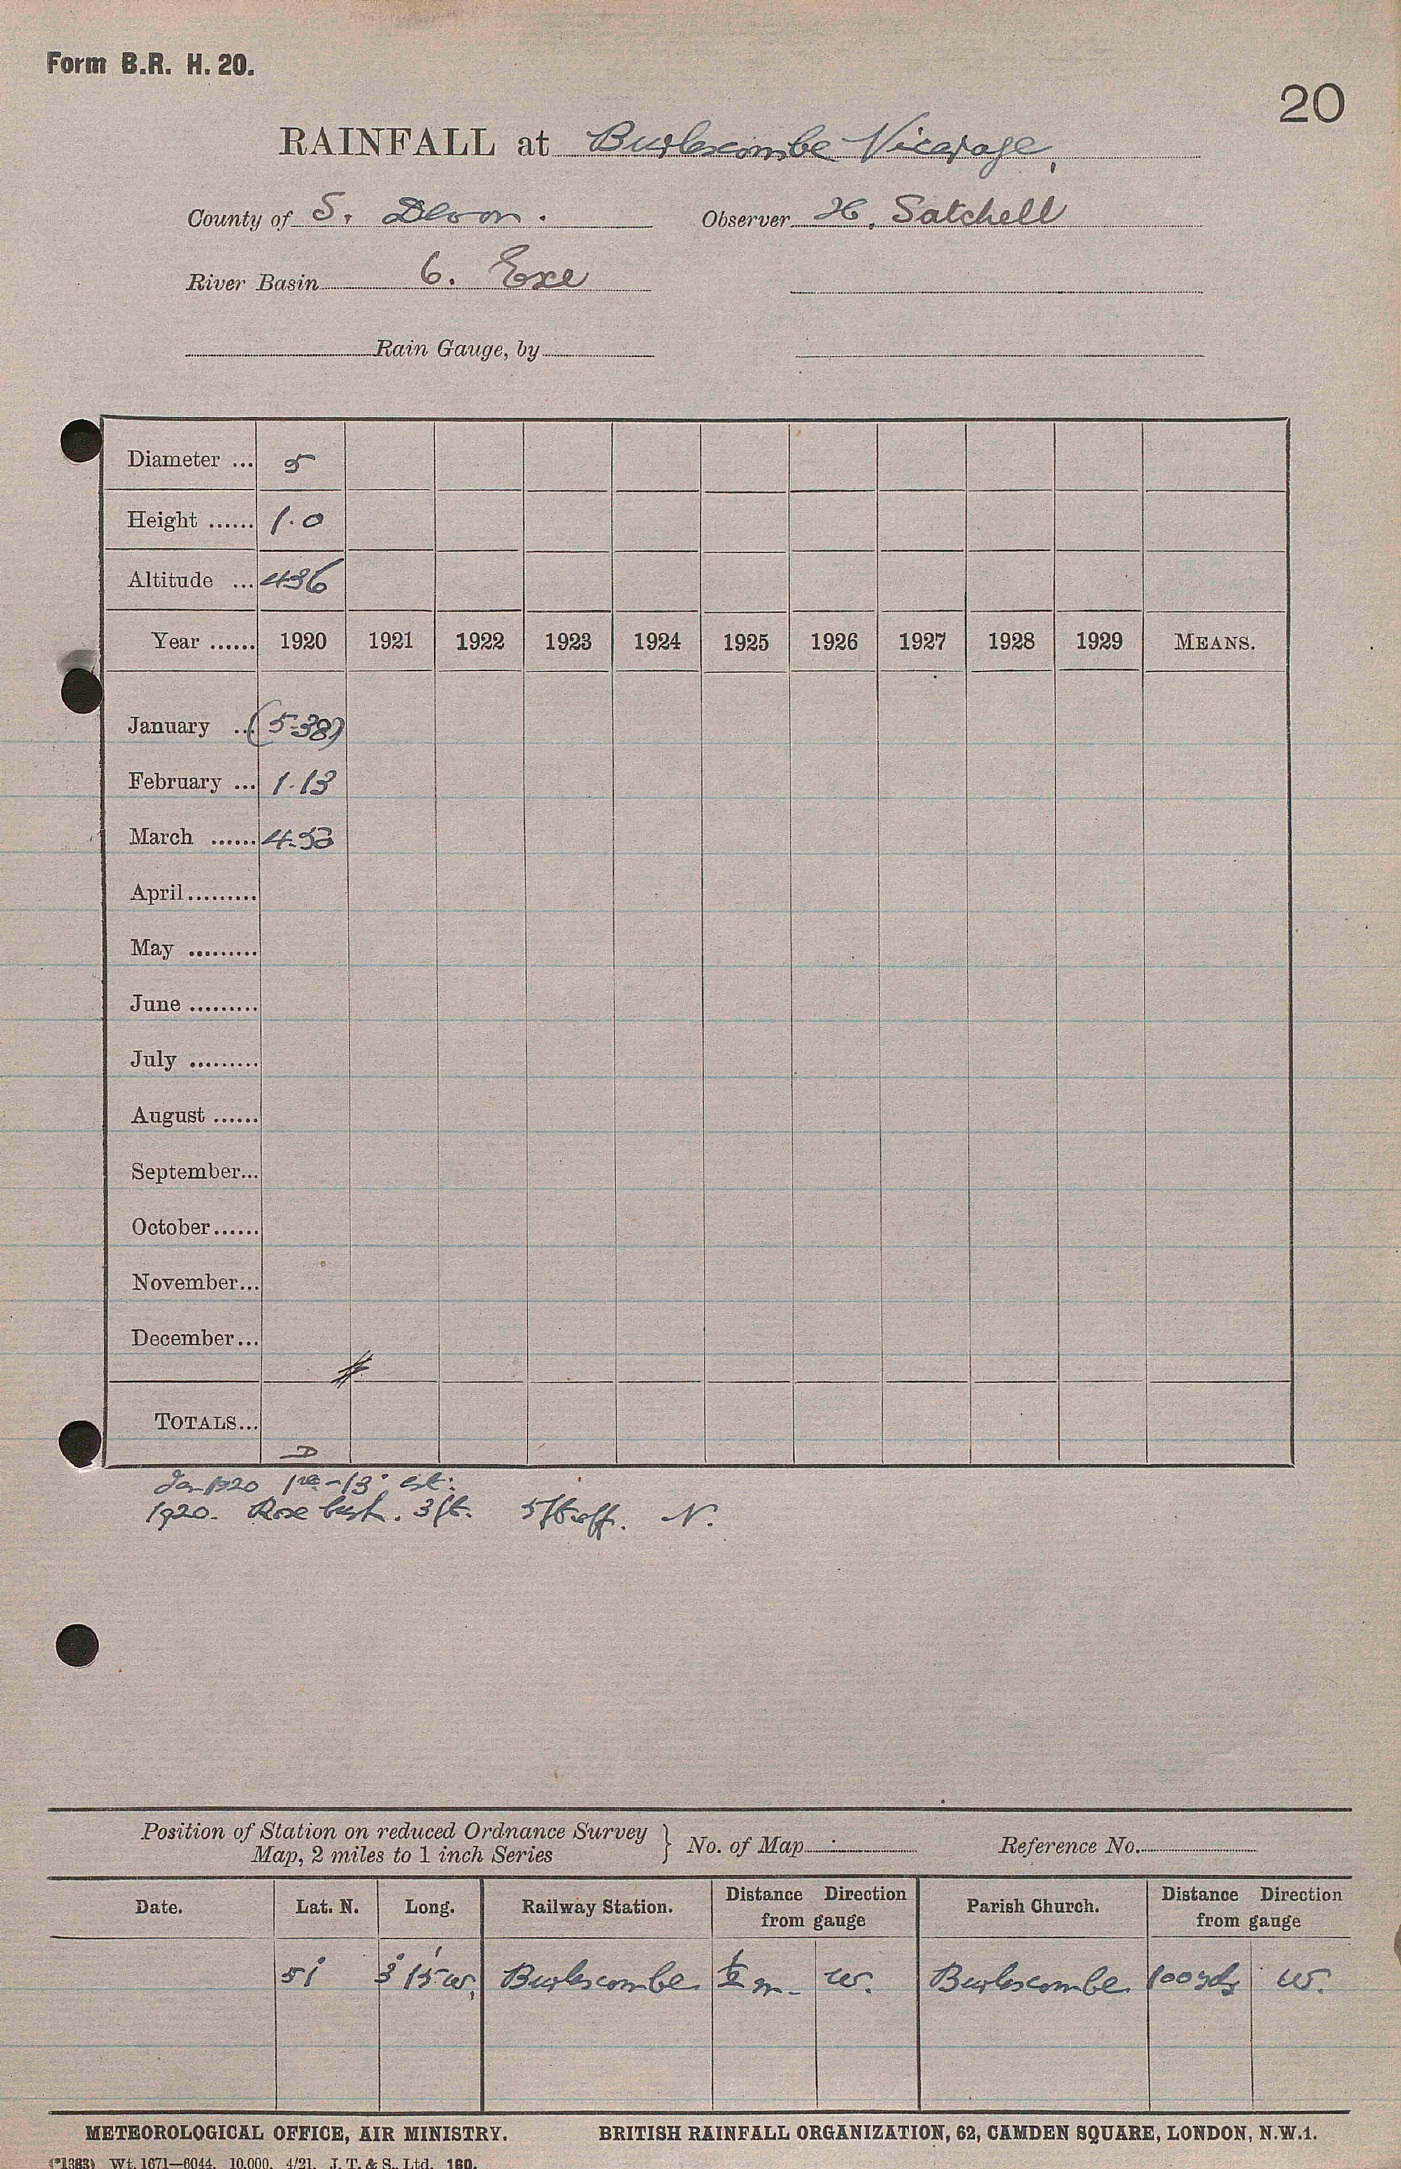 Form B.R. H. 20.
20
RAINFALL at Burlescombe Vicarage,
County of S. Devon. Observer H. Satchell
River Basin 6. Exe
Rain Gauge, by
Diameter ... 5
Height ...... 1.0
Altitude ... 436
Year ...... 1920 1921 1922 1923 1924 1925 1926 1927 1928 1929 MEANS.
January ... (5.38)
February ... 1.13
March ...... 4.53
April.........
May .........
June .........
July .........
August ......
September...
October......
November...
December...
TOTALS...
D
Jan 1920 1st-13 est:
1920. Rose bush. 3ft. 5ft off. N.
Position of Station on reduced Ordnance Survey
Map, 2 miles to 1 inch Series } No. of Map Reference No.
Date. Lat. N. Long. Railway Station. Distance Direction from gauge Parish Church. Distance Direction from gauge
51° 3° 15' W. Burlescombe ½ m. W. Burlescombe 100 yds W.
METEOROLOGICAL OFFICE, AIR MINISTRY. BRITISH RAINFALL ORGANIZATION, 62, CAMDEN SQUARE, LONDON, N.W.1.
(*1383) Wt. 1671—6044. 10,000. 4/21. J. T. & S., Ltd. 160.